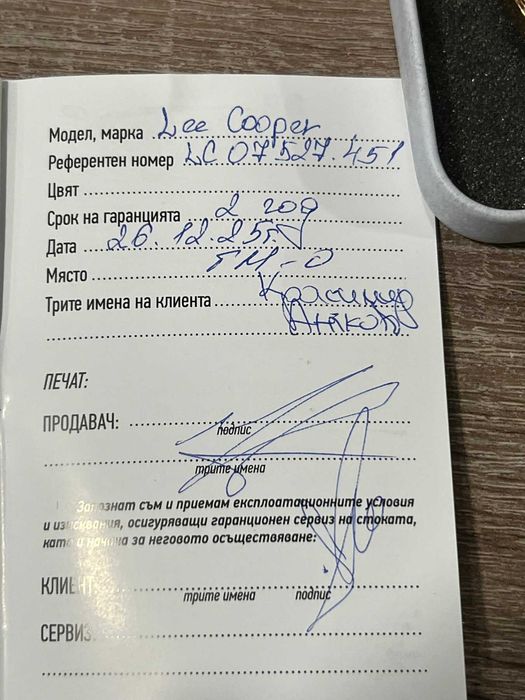 Модел, марка Lee Cooper
Референтен номер LC07527.451
Цвят
Срок на гаранцията 2 год
Дата 26.12.25г
Място
Трите имена на клиента Красимир
ПЕЧАТ:
ПРОДАВАЧ:
подпис
трите имена
Запознат съм и приемам експлоатационните условия
и изисквания, осигуряващи гаранционен сервиз на стоката,
както и начина за неговото осъществяване:
КЛИЕНТ
трите имена подпис
СЕРВИЗ